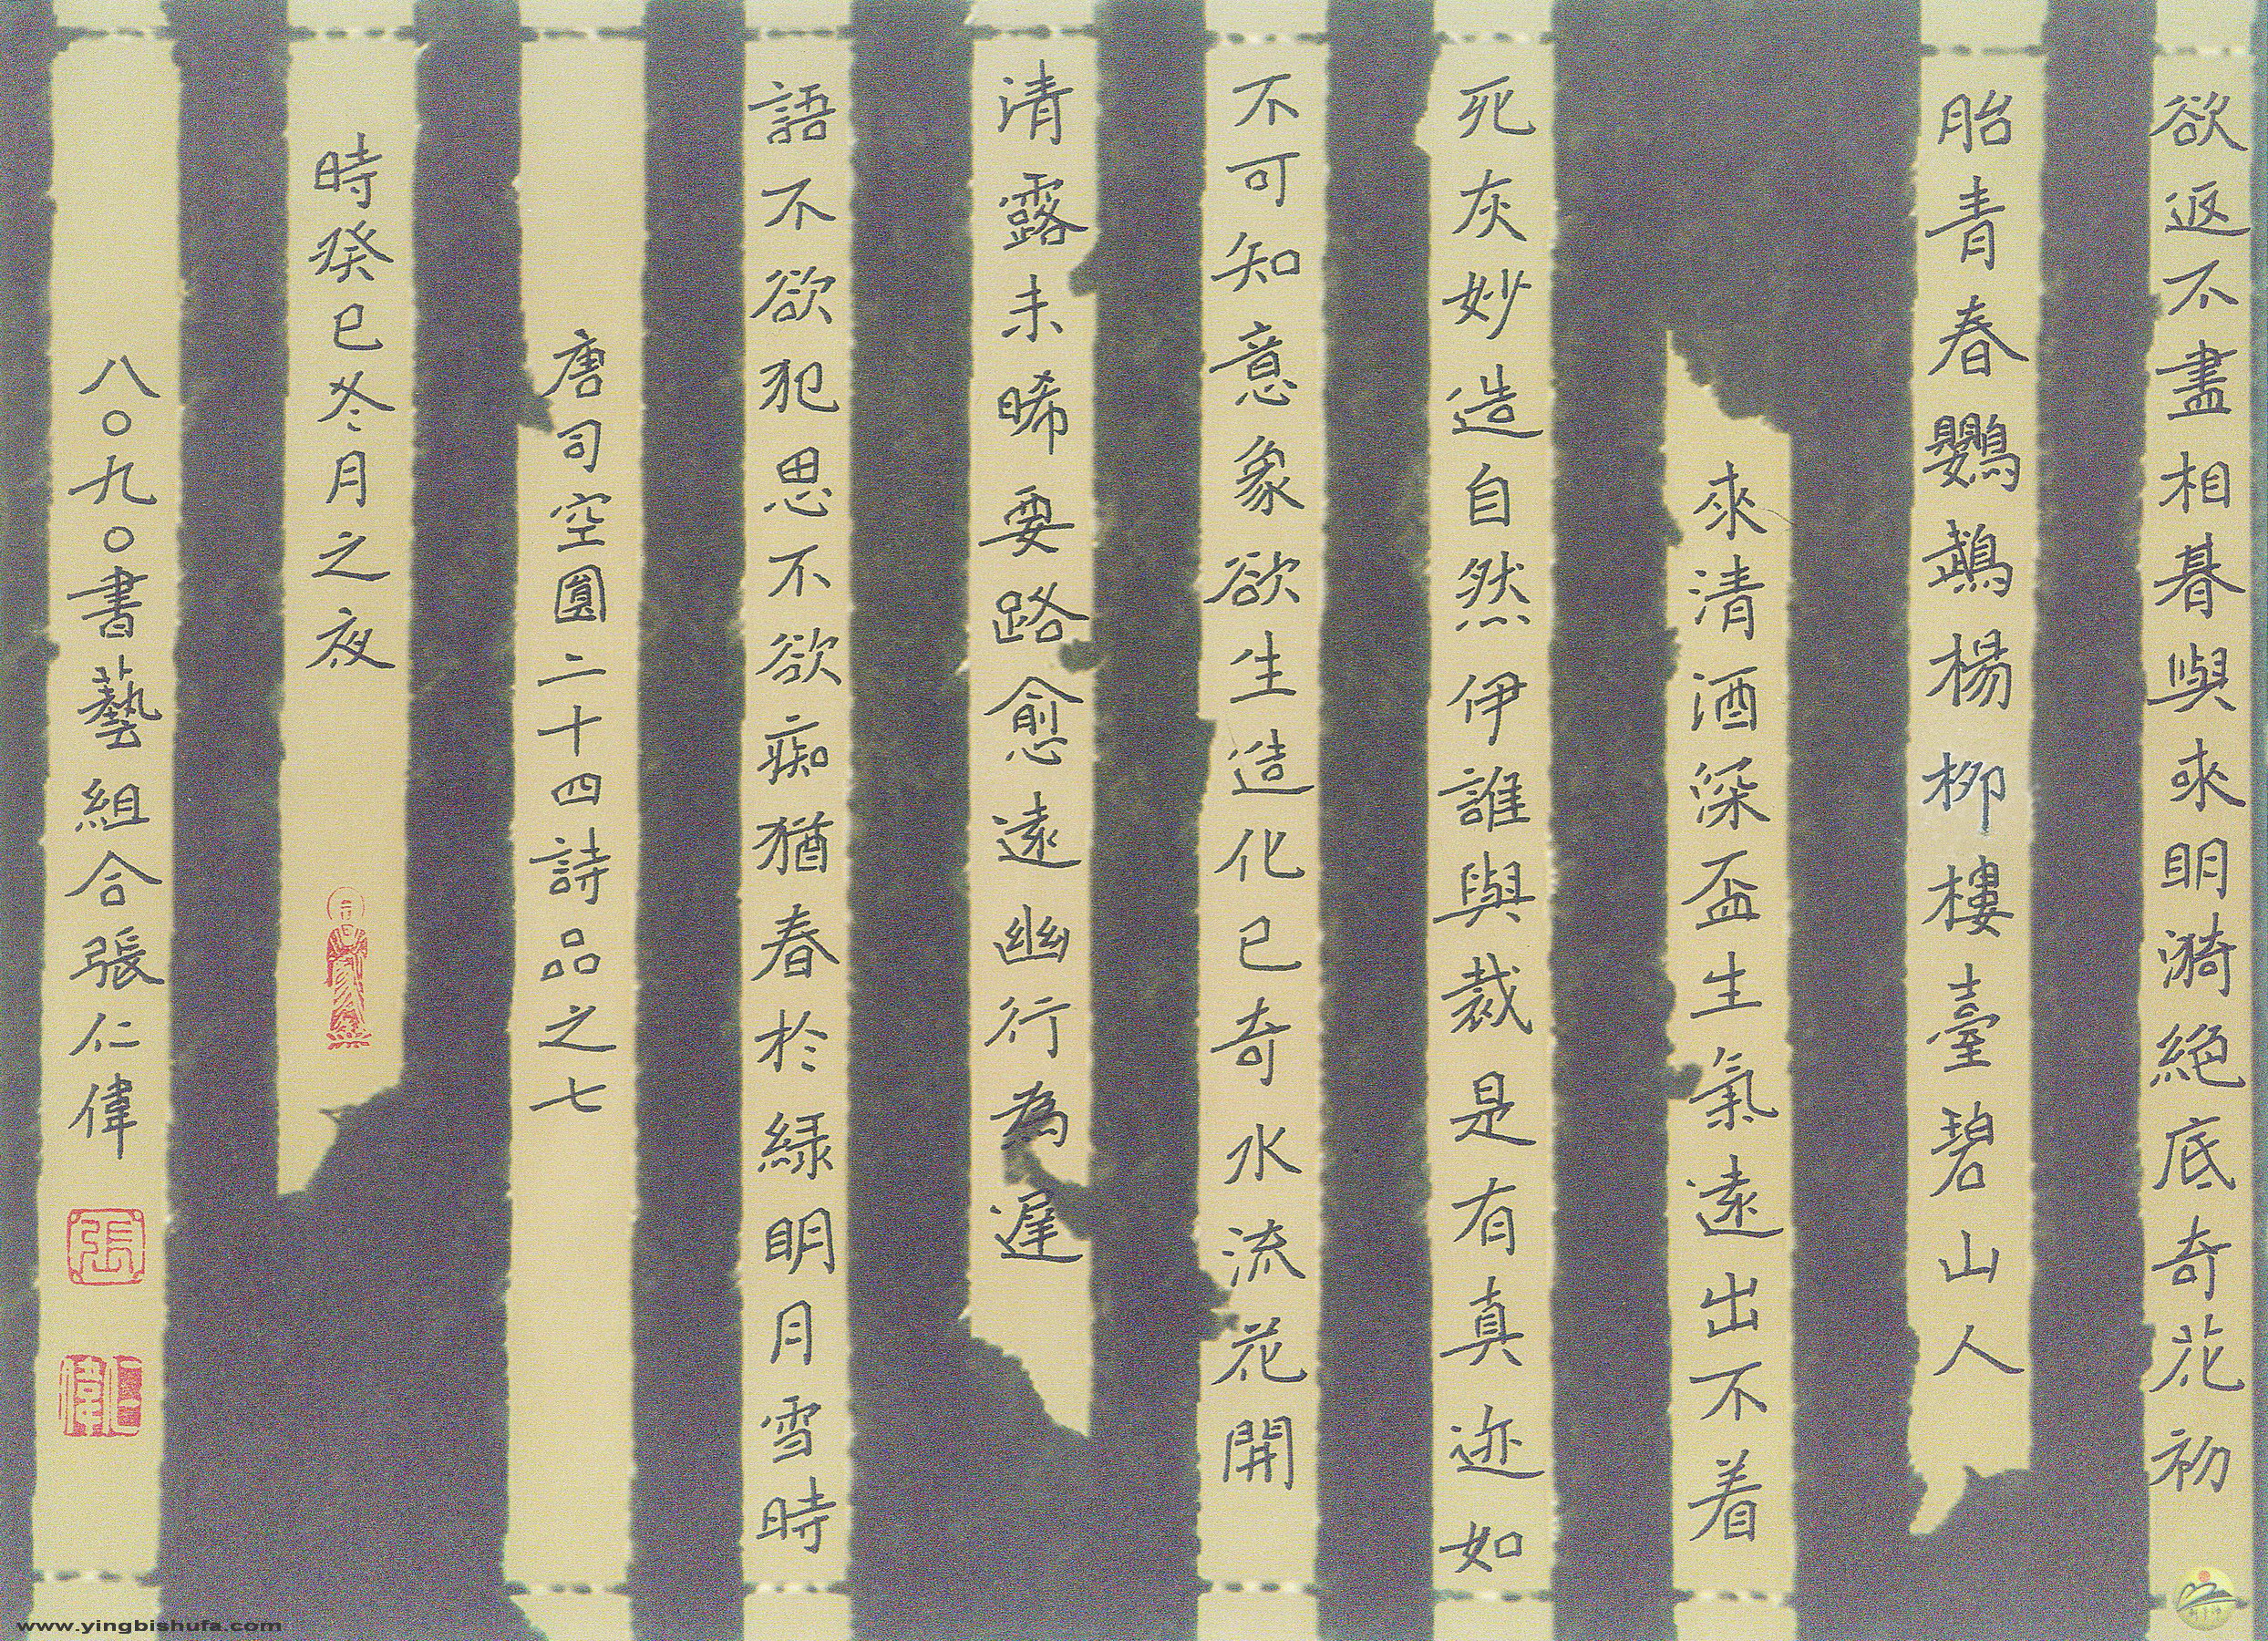 欲返不盡相碁與來明漪絕底奇花初
胎青春鸚鵡楊柳樓臺碧山人
來清酒深盃生氣遠出不着
死灰妙造自然伊誰與裁是有真迹如
不可知意象欲生造化已奇水流花開
清露未晞要路愈遠幽行為遲
語不欲犯思不欲痴猶春於緑明月雪時
唐司空圓二十四詩品之七
時癸巳冬月之夜
八〇九〇書藝組合張仁偉
張
仁偉
www.yingbishufa.com